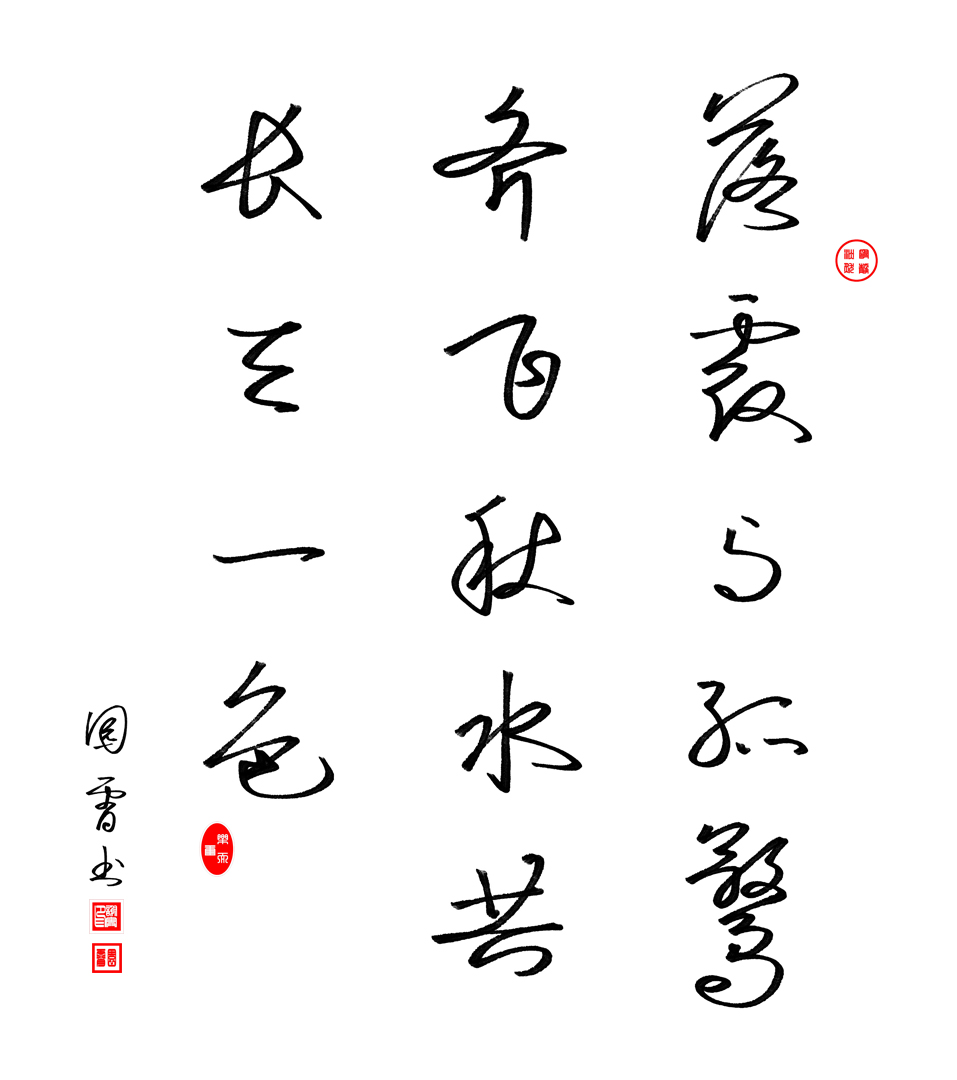 落霞与孤鹜
齐飞秋水共
长天一色
书